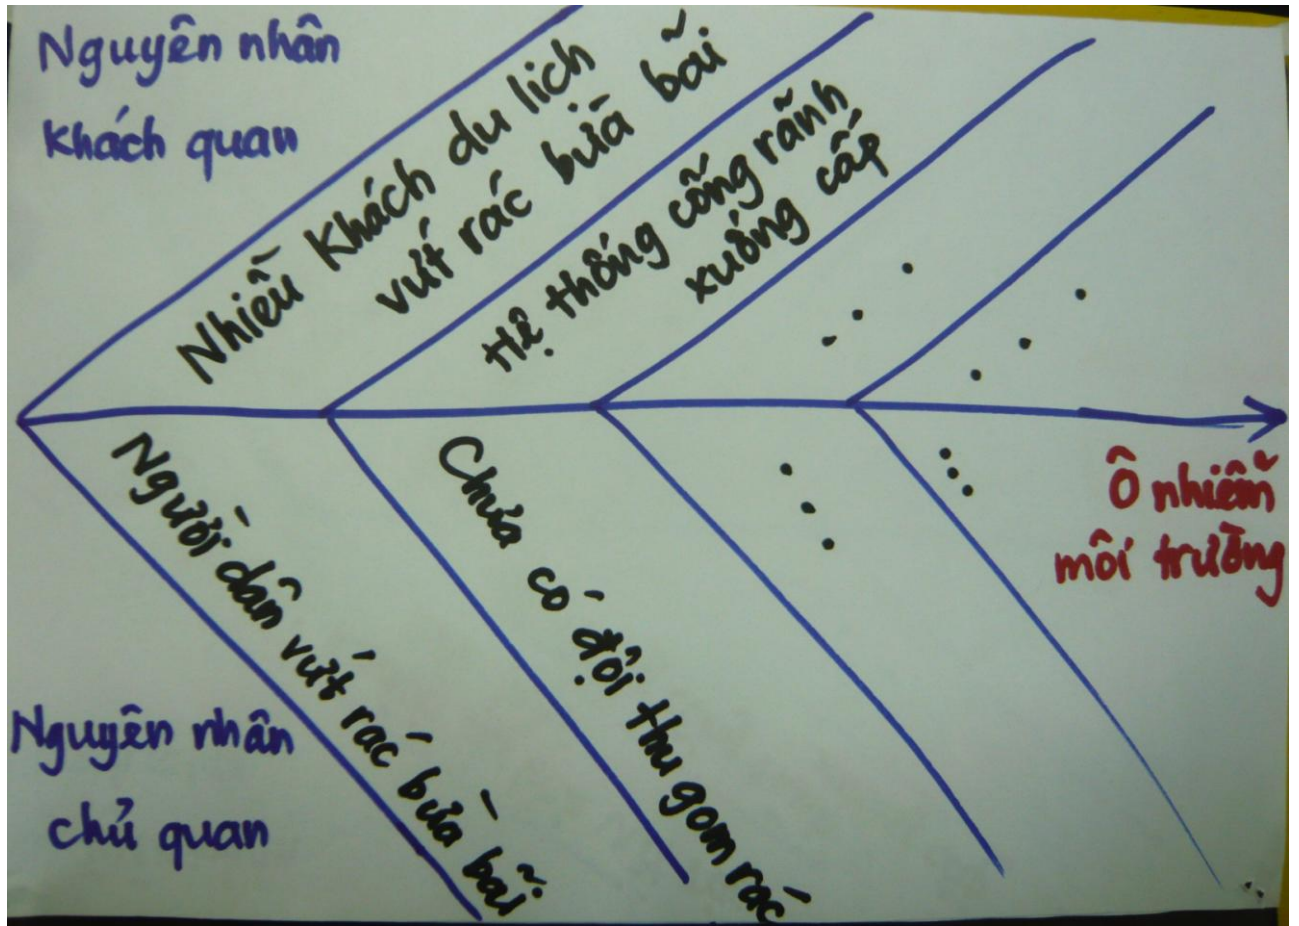 Nguyên nhân
khách quan
Nhiều khách du lich
vứt rác bừa bãi
Hệ thống cống rãnh
xuống cấp
. . .
. . .
Người dân vứt rác bừa bãi
Chưa có đội thu gom rác
. . .
. . .
Ô nhiễm
môi trường
Nguyên nhân
chủ quan